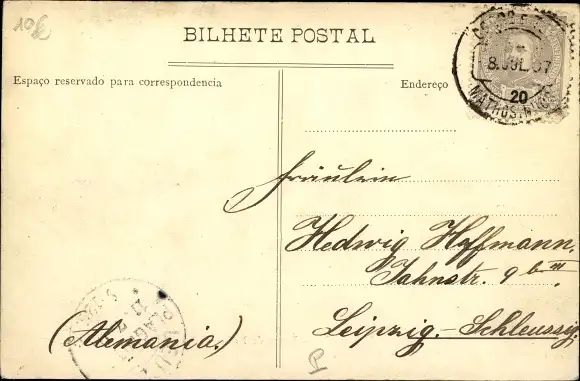 10€
BILHETE POSTAL
Espaço reservado para correspondencia
Endereço
8 JUL. 07
20
Fräulein
Hedwig Hoffmann,
Jahnstr. 9 b III
Leipzig.-Schleussig
(Alemania.)